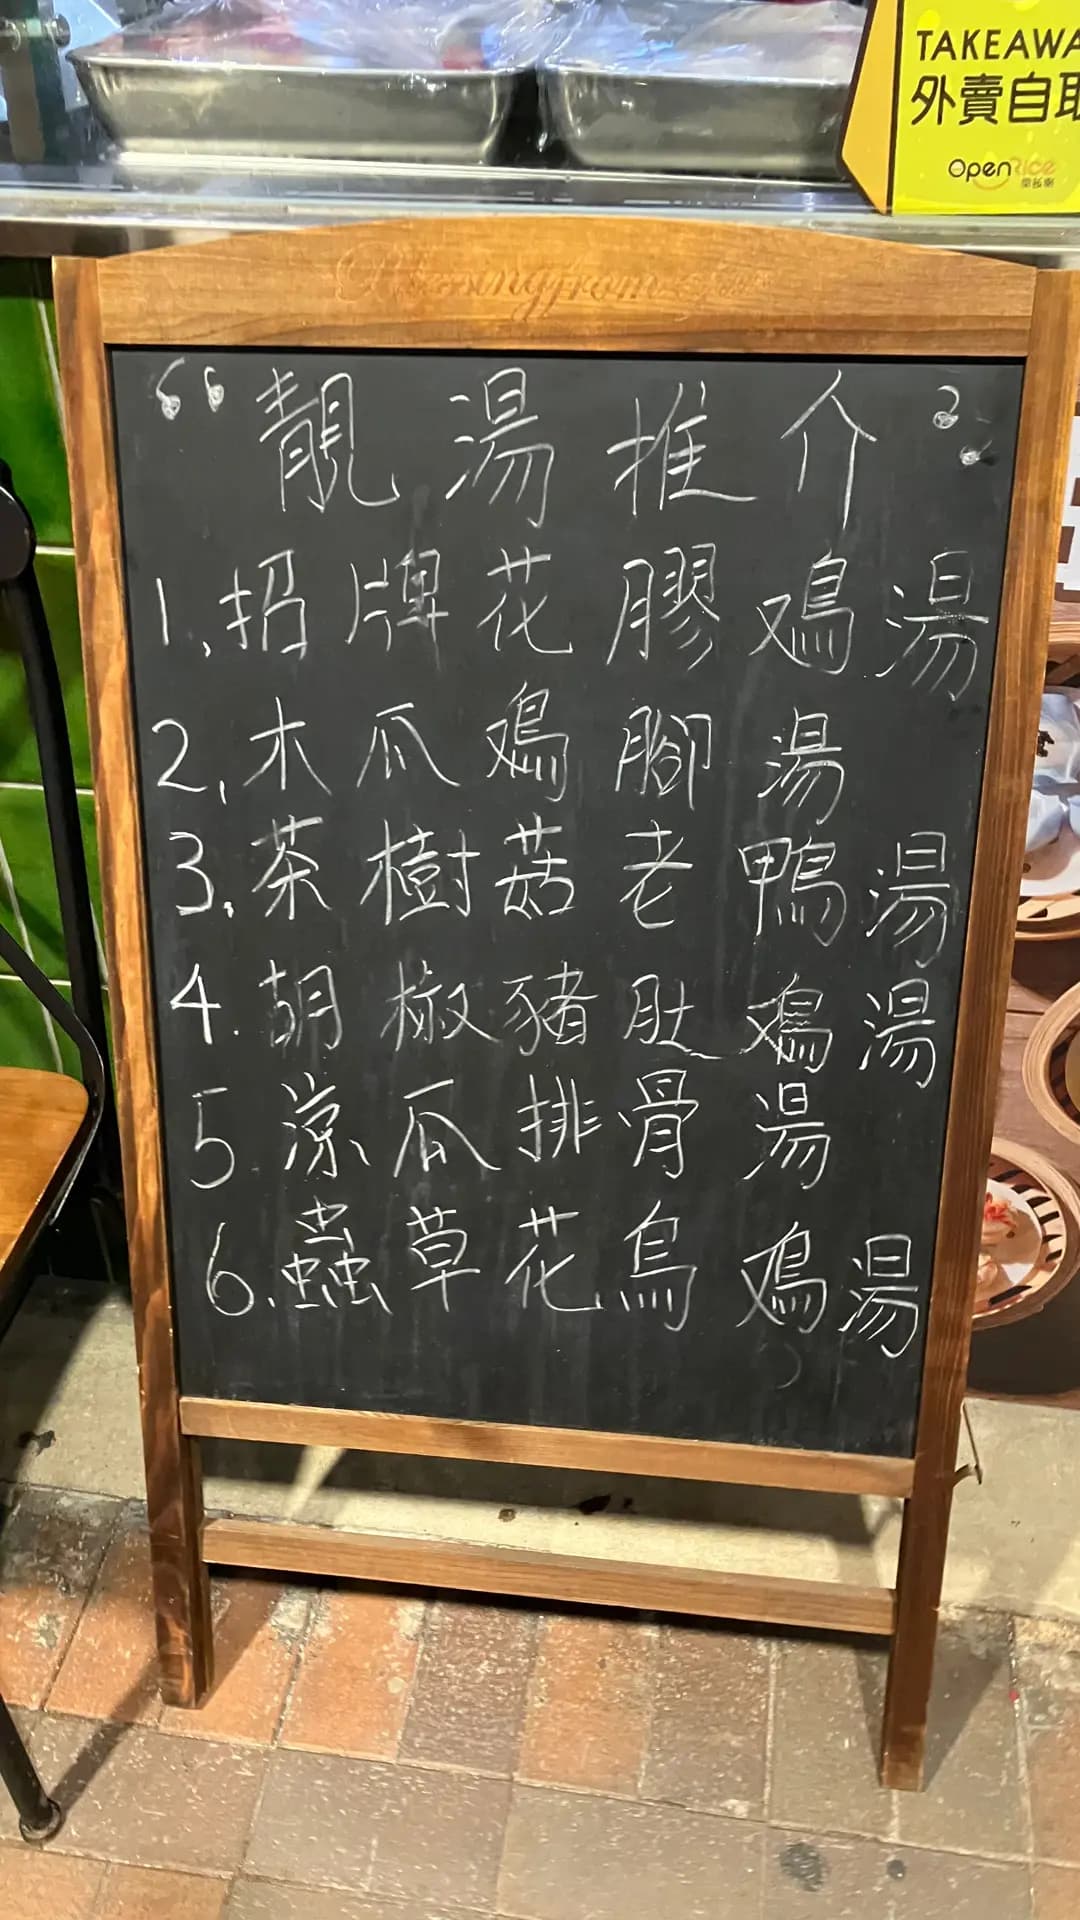 TAKEAWA
外賣自取
OpenRice
開飯喇
Blessing from
“靚湯推介”
1.招牌花膠鳮湯
2.木瓜鳮腳湯
3.茶樹菇老鴨湯
4.胡椒豬肚鳮湯
5涼瓜排骨湯
6.蟲草花烏鳮湯